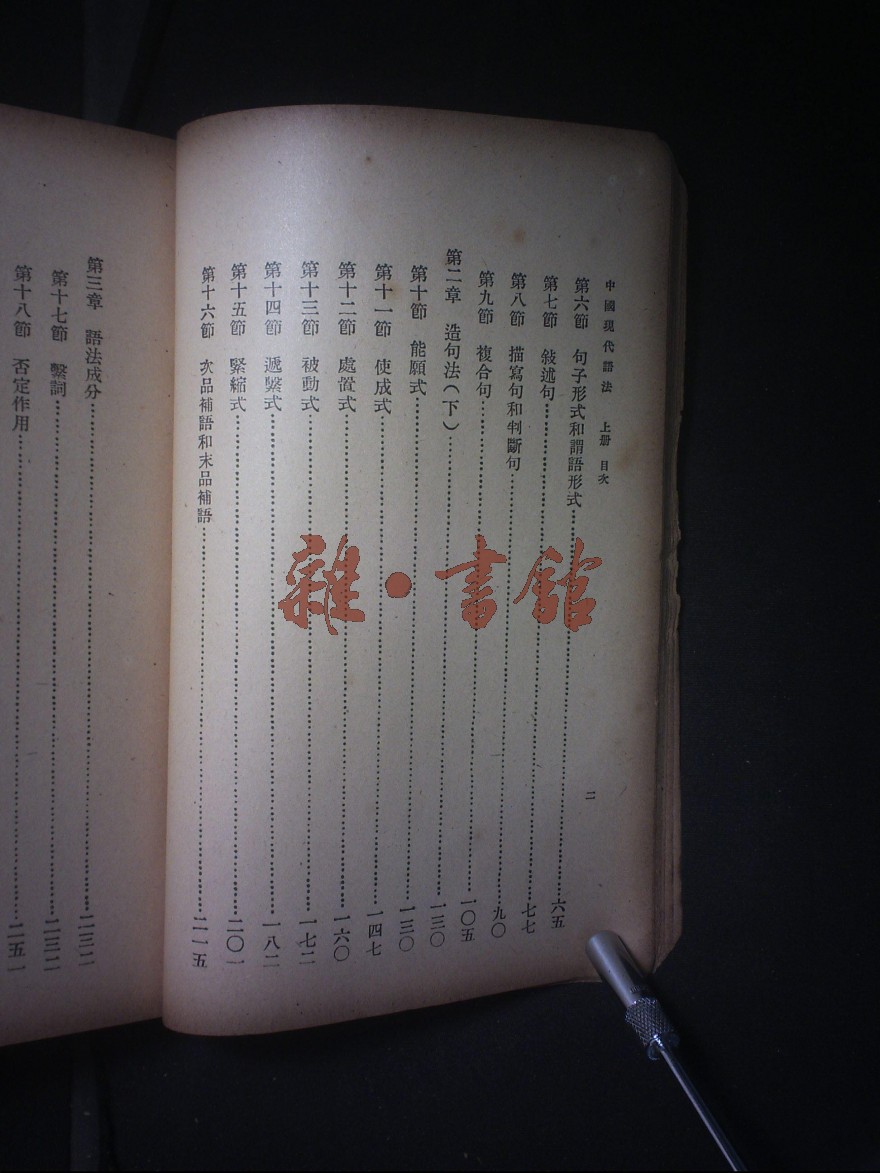 中國現代語法 上册 目次 二
第六節 句子形式和謂語形式……六五
第七節 敍述句……七七
第八節 描寫句和判斷句……九〇
第九節 複合句……一〇五
第二章 造句法(下)……一三〇
第十節 能願式……一三〇
第十一節 使成式……一四七
第十二節 處置式……一六〇
第十三節 被動式……一七二
第十四節 遞繫式……一八二
第十五節 緊縮式……二〇一
第十六節 次品補語和末品補語……二一五
第三章 語法成分……二三二
第十七節 繫詞……二三二
第十八節 否定作用……二五一
雜·書館